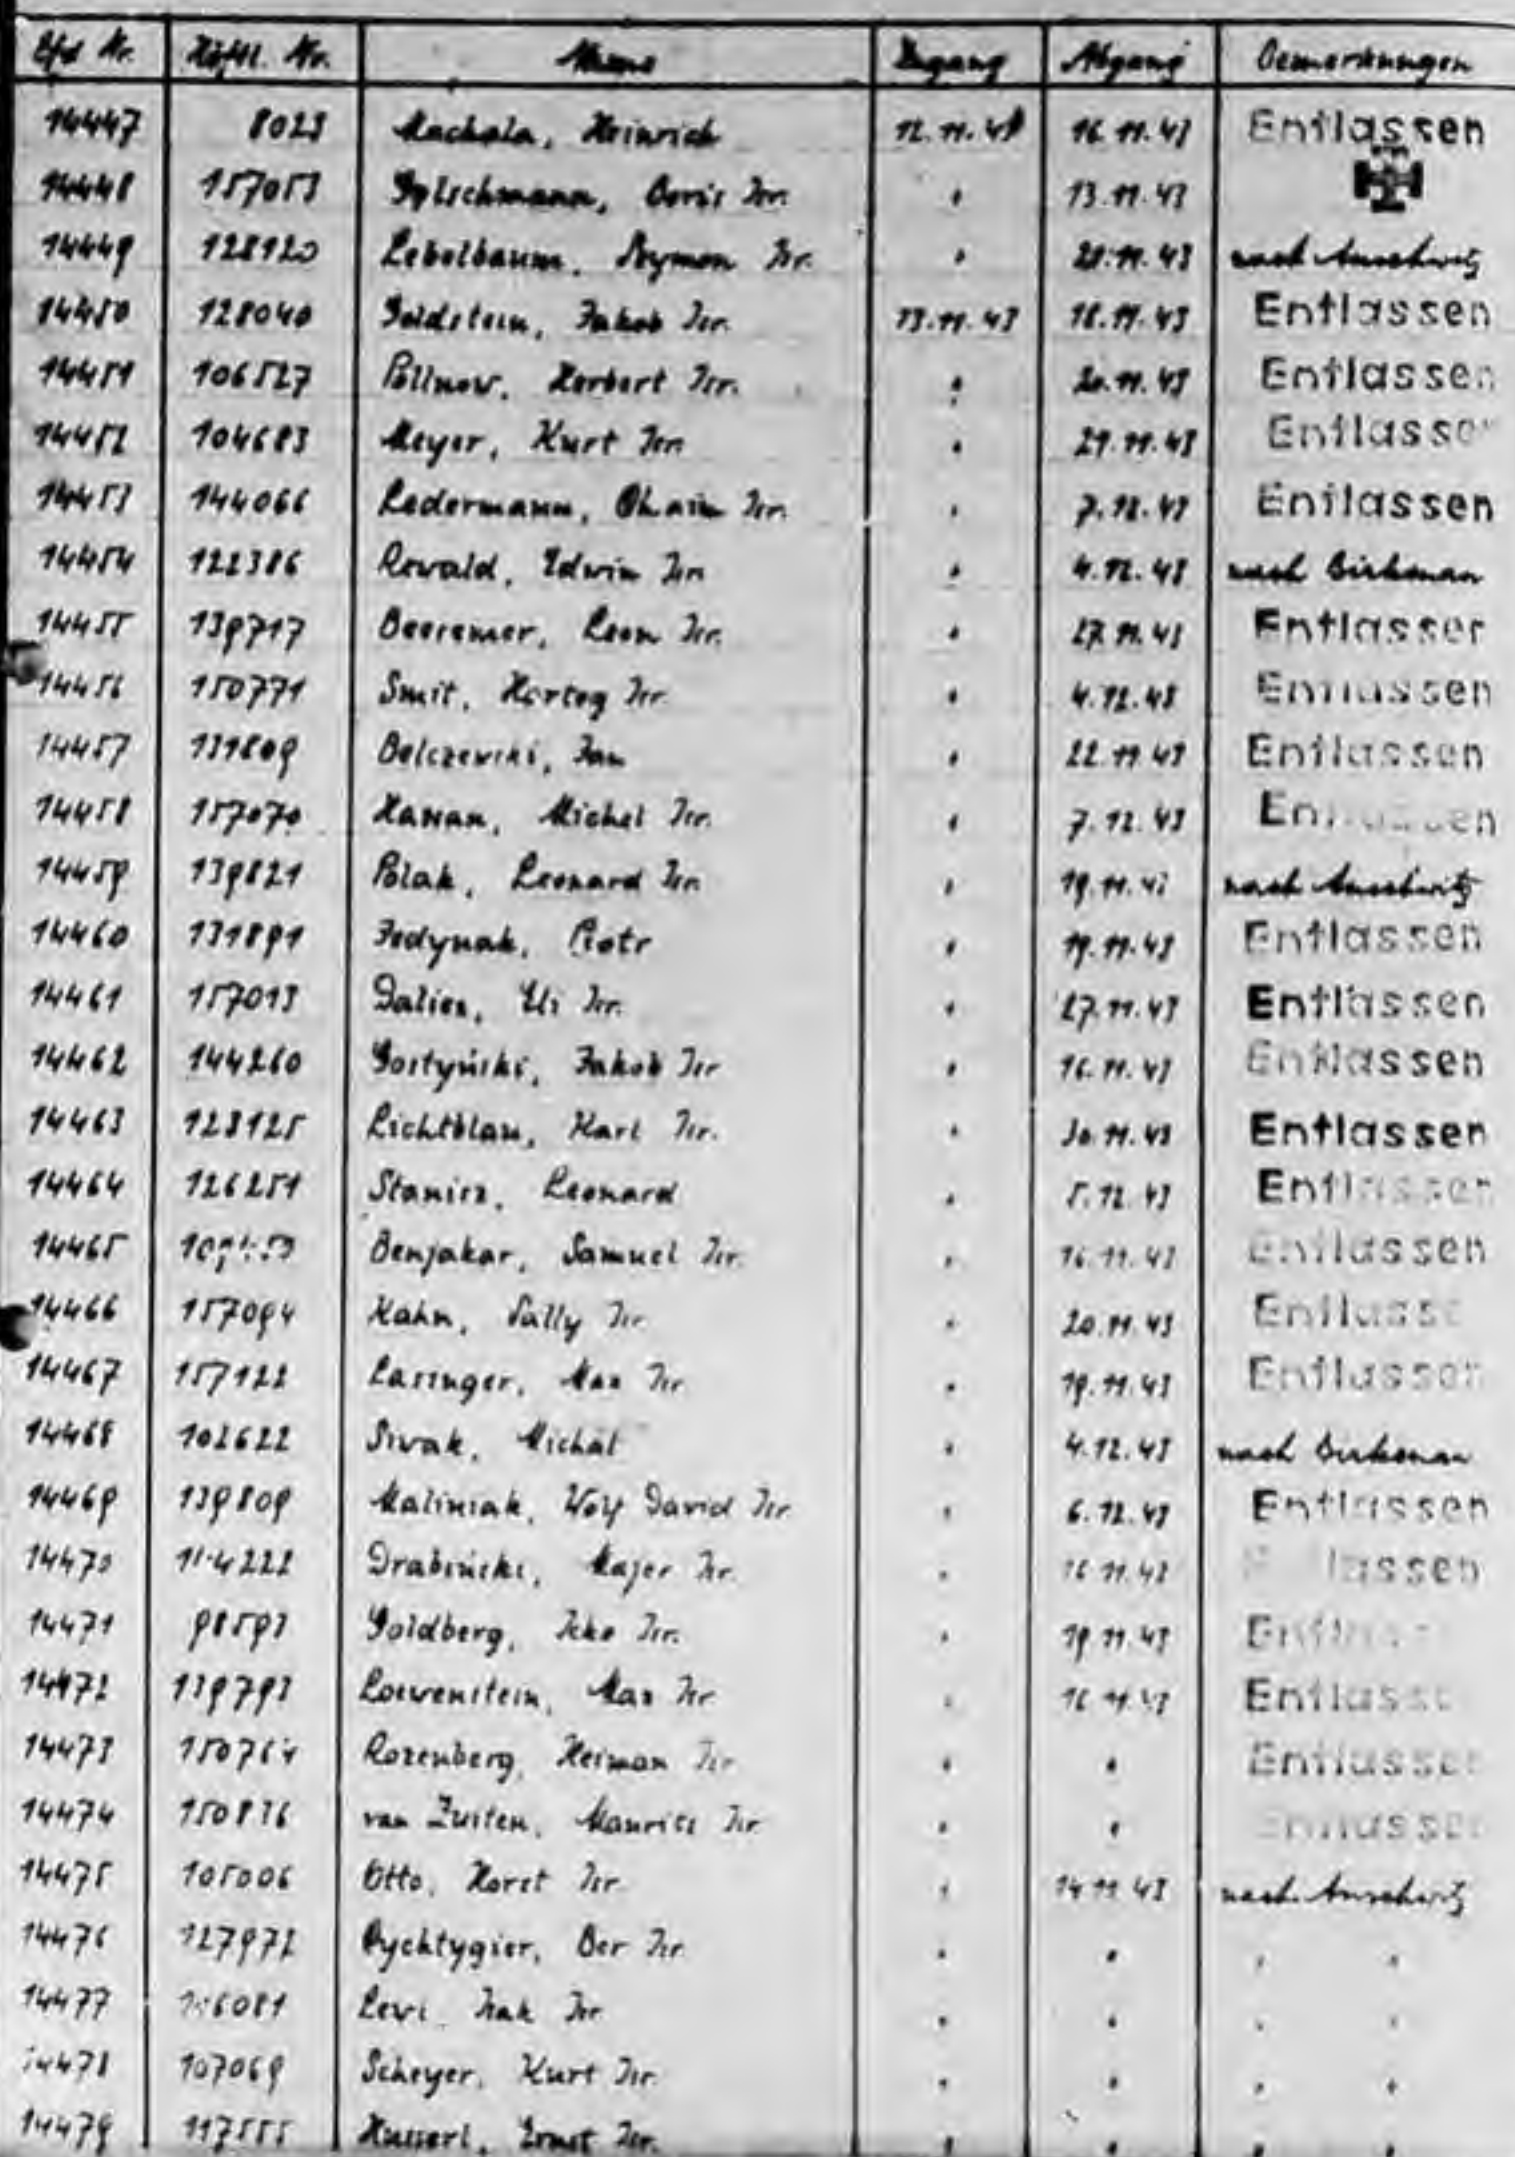 Lfd Nr. Häftl. Nr. Name Zugang Abgang Bemerkungen
14447 8023 Machala, Heinrich 12.11.43 16.11.43 Entlassen
14448 157053 Boris Isr. " 13.11.43
14449 128120 Lebelbaum, Szymon Isr. " 21.11.43 nach Auschwitz
14450 128040 Goldstein, Jakob Isr. 13.11.43 18.11.43 Entlassen
14451 106527 Pollnow, Herbert Isr. " 20.11.43 Entlassen
14452 104683 Meyer, Kurt Isr. " 21.11.43 Entlassen
14453 144066 Ledermann, Chaim Isr. " 7.12.43 Entlassen
14454 122386 Rewald, Edwin Isr. " 4.12.43 nach Birkenau
14455 139717 Beeremer, Leon Isr. " 27.11.43 Entlassen
14456 150771 Smit, Hartog Isr. " 4.12.43 Entlassen
14457 131809 Belczewski, Jan " 22.11.43 Entlassen
14458 157070 Hassan, Michel Isr. " 7.12.43 Entlassen
14459 139821 Polak, Leonard Isr. " 19.11.43 nach Auschwitz
14460 131891 Fedynak, Piotr " 19.11.43 Entlassen
14461 157013 Dalien, Eli Isr. " 27.11.43 Entlassen
14462 144260 Gostyński, Jakob Isr. " 16.11.43 Entlassen
14463 123125 Lichtblau, Karl Isr. " 30.11.43 Entlassen
14464 126251 Stanisz, Leonard " 5.12.43 Entlassen
14465 Benjakar, Samuel Isr. " 16.11.43 Entlassen
14466 157094 Kahn, Sally Isr. " 20.11.43 Entlassen
14467 157122 Lasinger, Max Isr. " 19.11.43 Entlassen
14468 102622 Sivak, Michal " 4.12.43 nach Birkenau
14469 139809 Maliniak, Wolf David Isr. " 6.12.43 Entlassen
14470 Drabinicki, Majer Isr. " 16.11.43 Entlassen
14471 98593 Goldberg, Icko Isr. " 19.11.43 Entlassen
14472 139793 Loewenstein, Max Isr. " 16.11.43 Entlassen
14473 150764 Rozenberg, Heiman Isr. " " Entlassen
14474 150836 van Zuiten, Maurits Isr. " " Entlassen
14475 105006 Otto, Horst Isr. " 14.11.43 nach Auschwitz
14476 127972 Rychtygier, Ber Isr. " " " "
14477 Lewi, Isak Isr. " " " "
14478 107069 Scheyer, Kurt Isr. " " " "
14479 117555 Husserl, Ernst Isr. " " " "